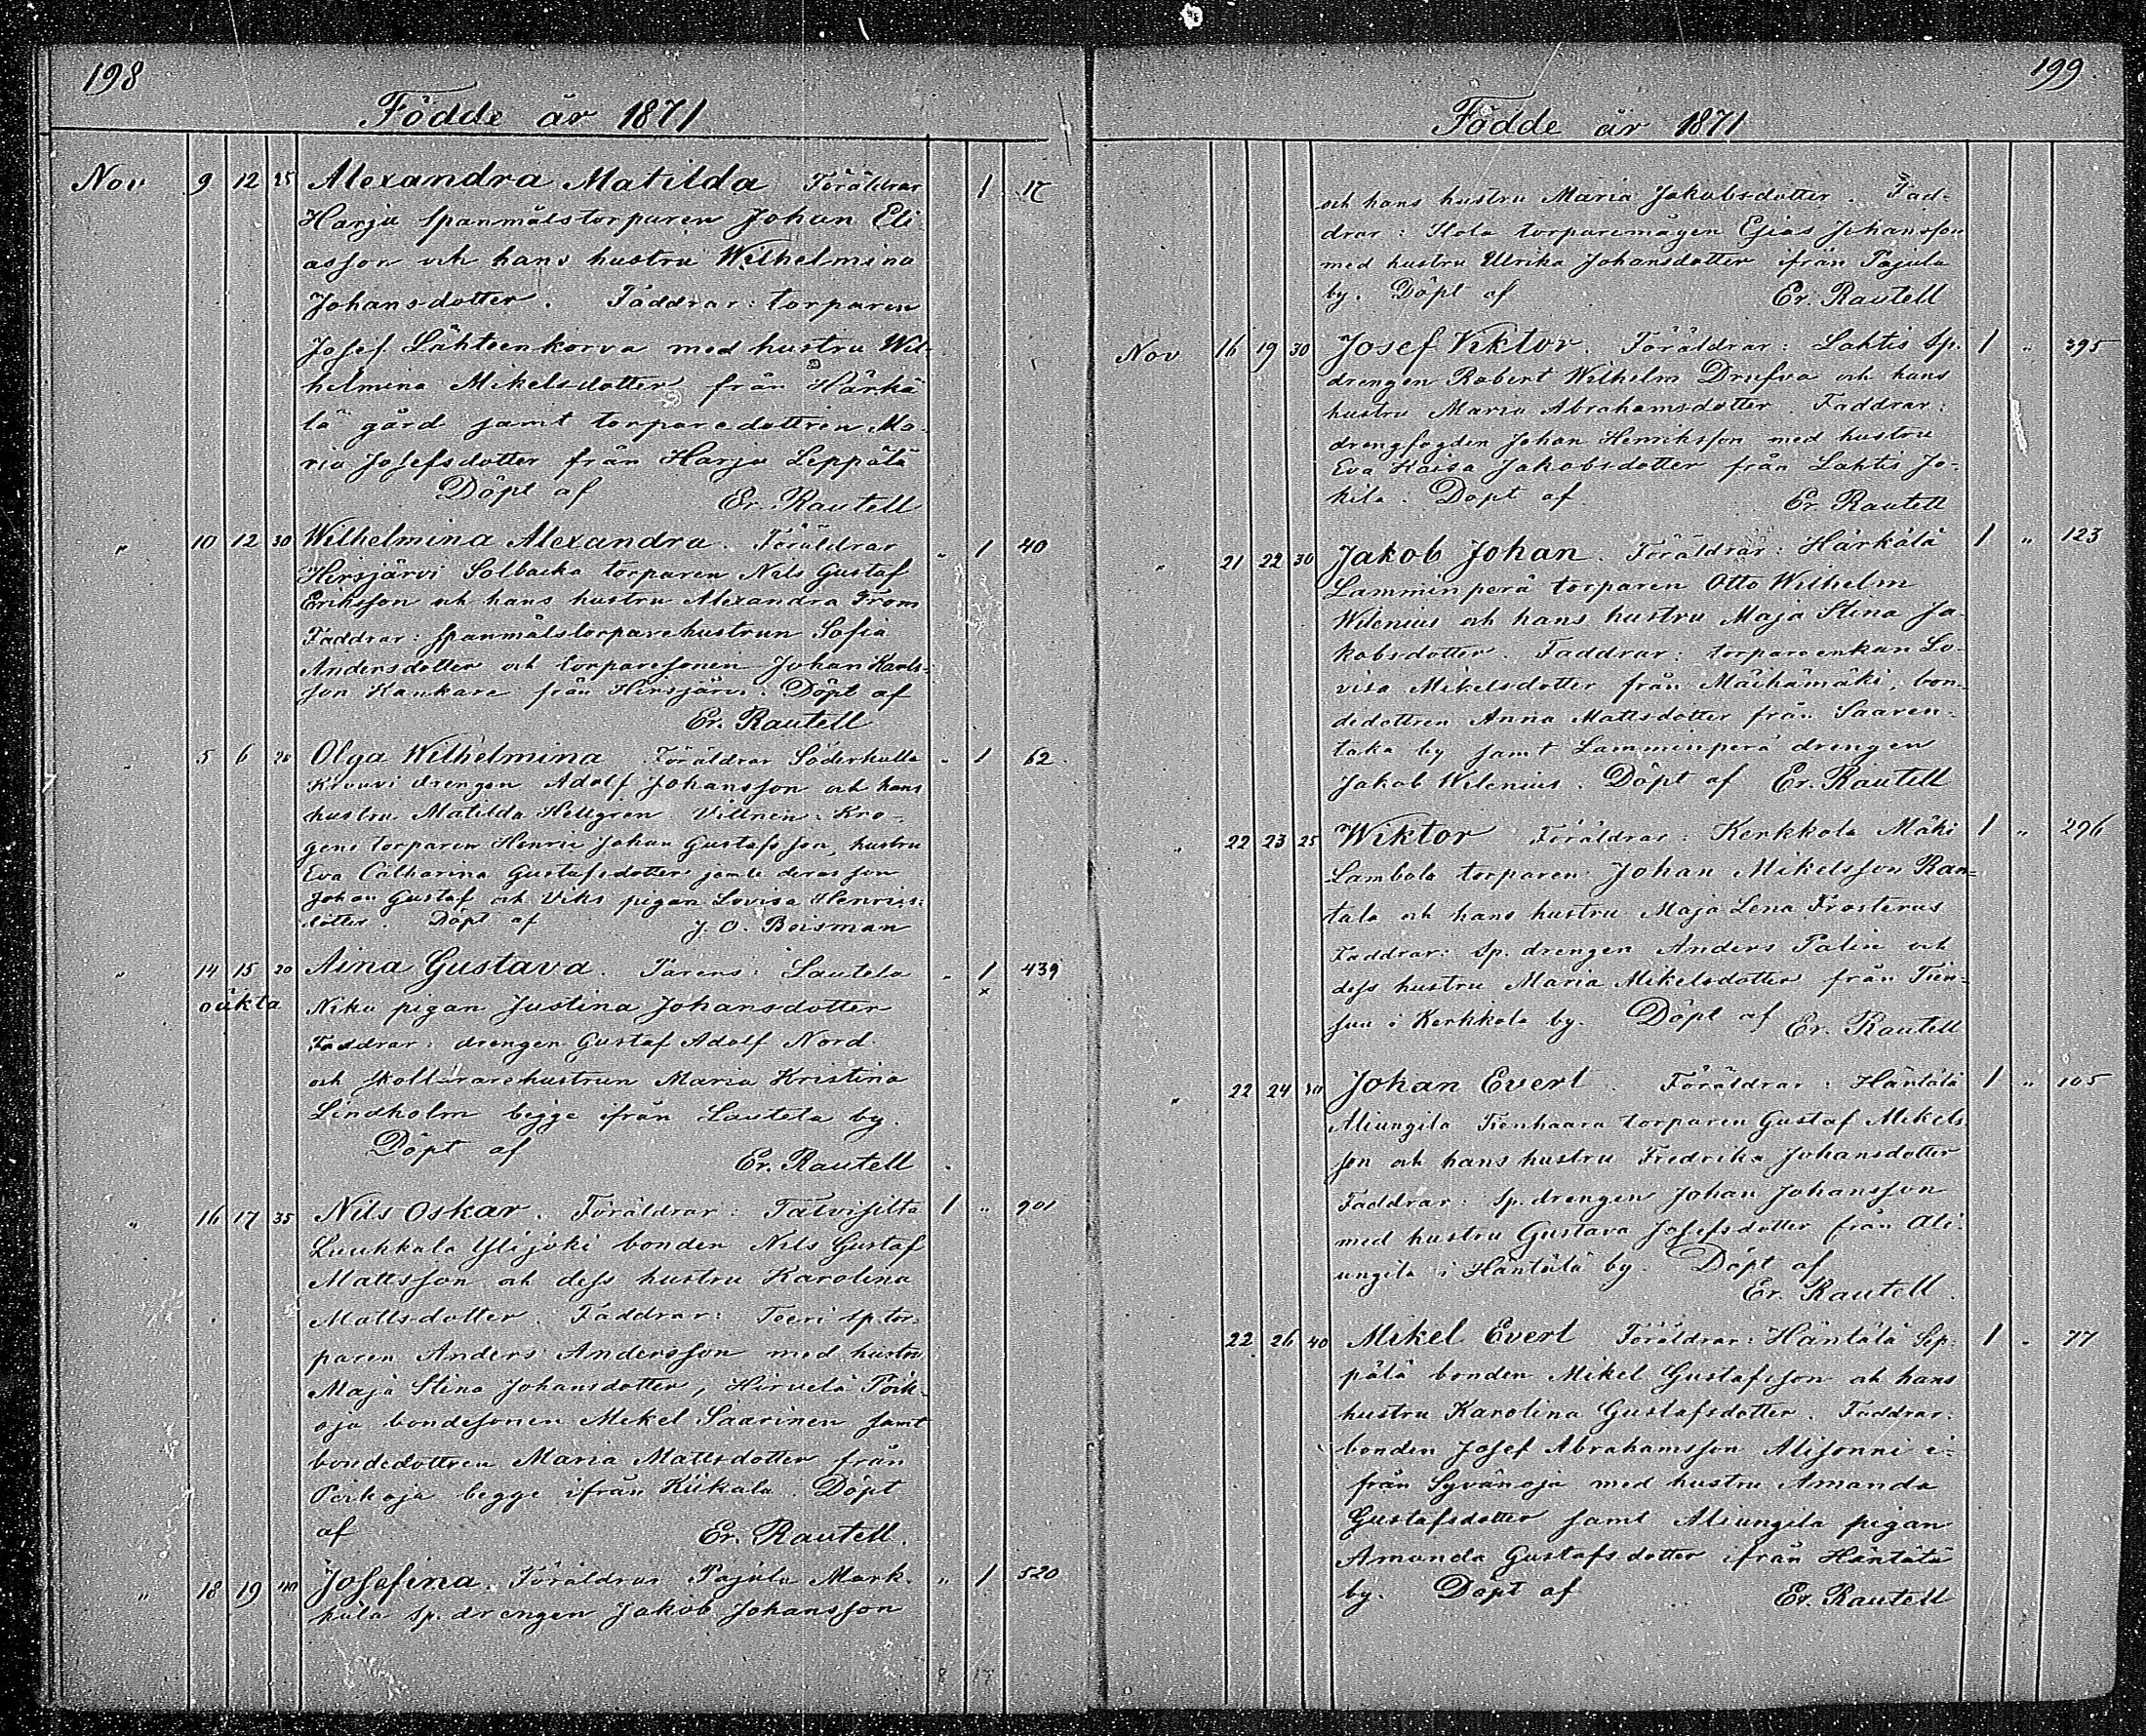 198
Födde år 1871
Nov 9 12 25 Alexandra Matilda Föräldrar 1 17
Harju spanmålstorparen Johan Eli-
asson och hans hustru Wilhelmina
Johansdotter. Faddrar: torparen
Josef Lähteenkorva med hustru Wil-
helmina Mikelsdotter från Härkä
lä gård samt torparedottren Ma-
ria Josefsdotter från Harju Leppälä
Döpt af Er. Rautell
" 10 12 30 Wilhelmina Alexandra. Föräldrar " 1 40
Hirsjärvi Solbacka torparen Nils Gustaf
Eriksson och hans hustru Alexandra From
Faddrar: spanmålstorparehustrun Sofia
Andersdotter och torparesonen Johan Karls-
son Kankare från Hirsjärvi. Döpt af
Er. Rautell
" 5 6 20 Olga Wilhelmina Föräldrar Söderkulla " 1 62
Krouvi drengen Adolf Johansson och hans
hustru Matilda Hellgren Vittnen: Kro-
gens torparen Henric Johan Gustafsson, hustru
Eva Catharina Gustafsdotter jemte deras son
Johan Gustaf och Viks pigan Lovisa Henrics-
dotter. Döpt af J. O. Boisman
" 14 15 20 Aina Gustava. Parens: Sautela " 1 439
oäkta Niku pigan Justina Johansdotter ×
Faddrar: drengen Gustaf Adolf Nord
och skollärarehustrun Maria Kristina
Lindholm begge ifrån Sautela by.
Döpt af Er. Rautell
" 16 17 35 Nils Oskar. Föräldrar: Talvisilta 1 " 901
Luukkala Ylijoki bonden Nils Gustaf
Mattsson och dess hustru Karolina
Mattsdotter. Faddrar: Teeri sp.tor-
paren Anders Andersson med hustru
Maja Stina Johansdotter, Hirvelä Poik-
oja bondesonen Mikel Saarinen samt
bondedottren Maria Mattsdotter från
Poikoja begge ifrån Kiikala. Döpt
af Er. Rautell.
" 18 19 40 Josefina. Föräldrar Pajula Mark- " 1 520
kula sp.drengen Jakob Johansson
199.
Födde år 1871
och hans hustru Maria Jakobsdotter. Fad-
drar: Hola torparemågen Esias Johansson
med hustru Ulrika Johansdotter ifrån Pajula
by. Döpt af Er. Rautell
Nov 16 19 30 Josef Viktor. Föräldrar: Lahtis sp. 1 " 395
drengen Robert Wilhelm Drufva och hans
hustru Maria Abrahamsdotter. Faddrar:
drengfogden Johan Henriksson med hustru
Eva Kaisa Jakobsdotter från Lahtis Jo-
kila. Döpt af Er. Rautell
" 21 22 30 Jakob Johan. Föräldrar: Härkälä 1 " 123
Lamminperä torparen Otto Wilhelm
Wilenius och hans hustru Maja Stina Ja-
kobsdotter. Faddrar: torpareenkan Lo-
visa Mikelsdotter från Mäihämäki, bon-
dedottren Anna Mattsdotter från Saaren-
taka by samt Lamminperä drengen
Jakob Wilenius. Döpt af Er. Rautell
" 22 23 25 Wiktor Föräldrar: Kerkkola Mäki 1 " 296
Lambola torparen Johan Mikelsson Ran-
tala och hans hustru Maja Lena Frosterus
Faddrar: sp. drengen Anders Palin och
dess hustru Maria Mikelsdotter från Tien-
suu i Kerkkola by. Döpt af Er. Rautell
" 22 24 30 Johan Evert. Föräldrar: Häntälä 1 " 105
Aliungila Tienhaara torparen Gustaf Mikels
son och hans hustru Fredrika Johansdotter
Faddrar: Sp. drengen Johan Johansson
med hustru Gustava Josefsdotter från Ali-
ungila i Häntälä by. Döpt af
Er. Rautell.
22 26 40 Mikel Evert Föräldrar: Häntälä Sep- 1 " 77
pälä bonden Mikel Gustafsson och hans
hustru Karolina Gustafsdotter. Faddrar:
bonden Josef Abrahamsson Alisonni i-
från Syvänoja med hustru Amanda
Gustafsdotter samt Aliungila pigan
Amanda Gustafsdotter ifrån Häntälä
by. Döpt af Er. Rautell